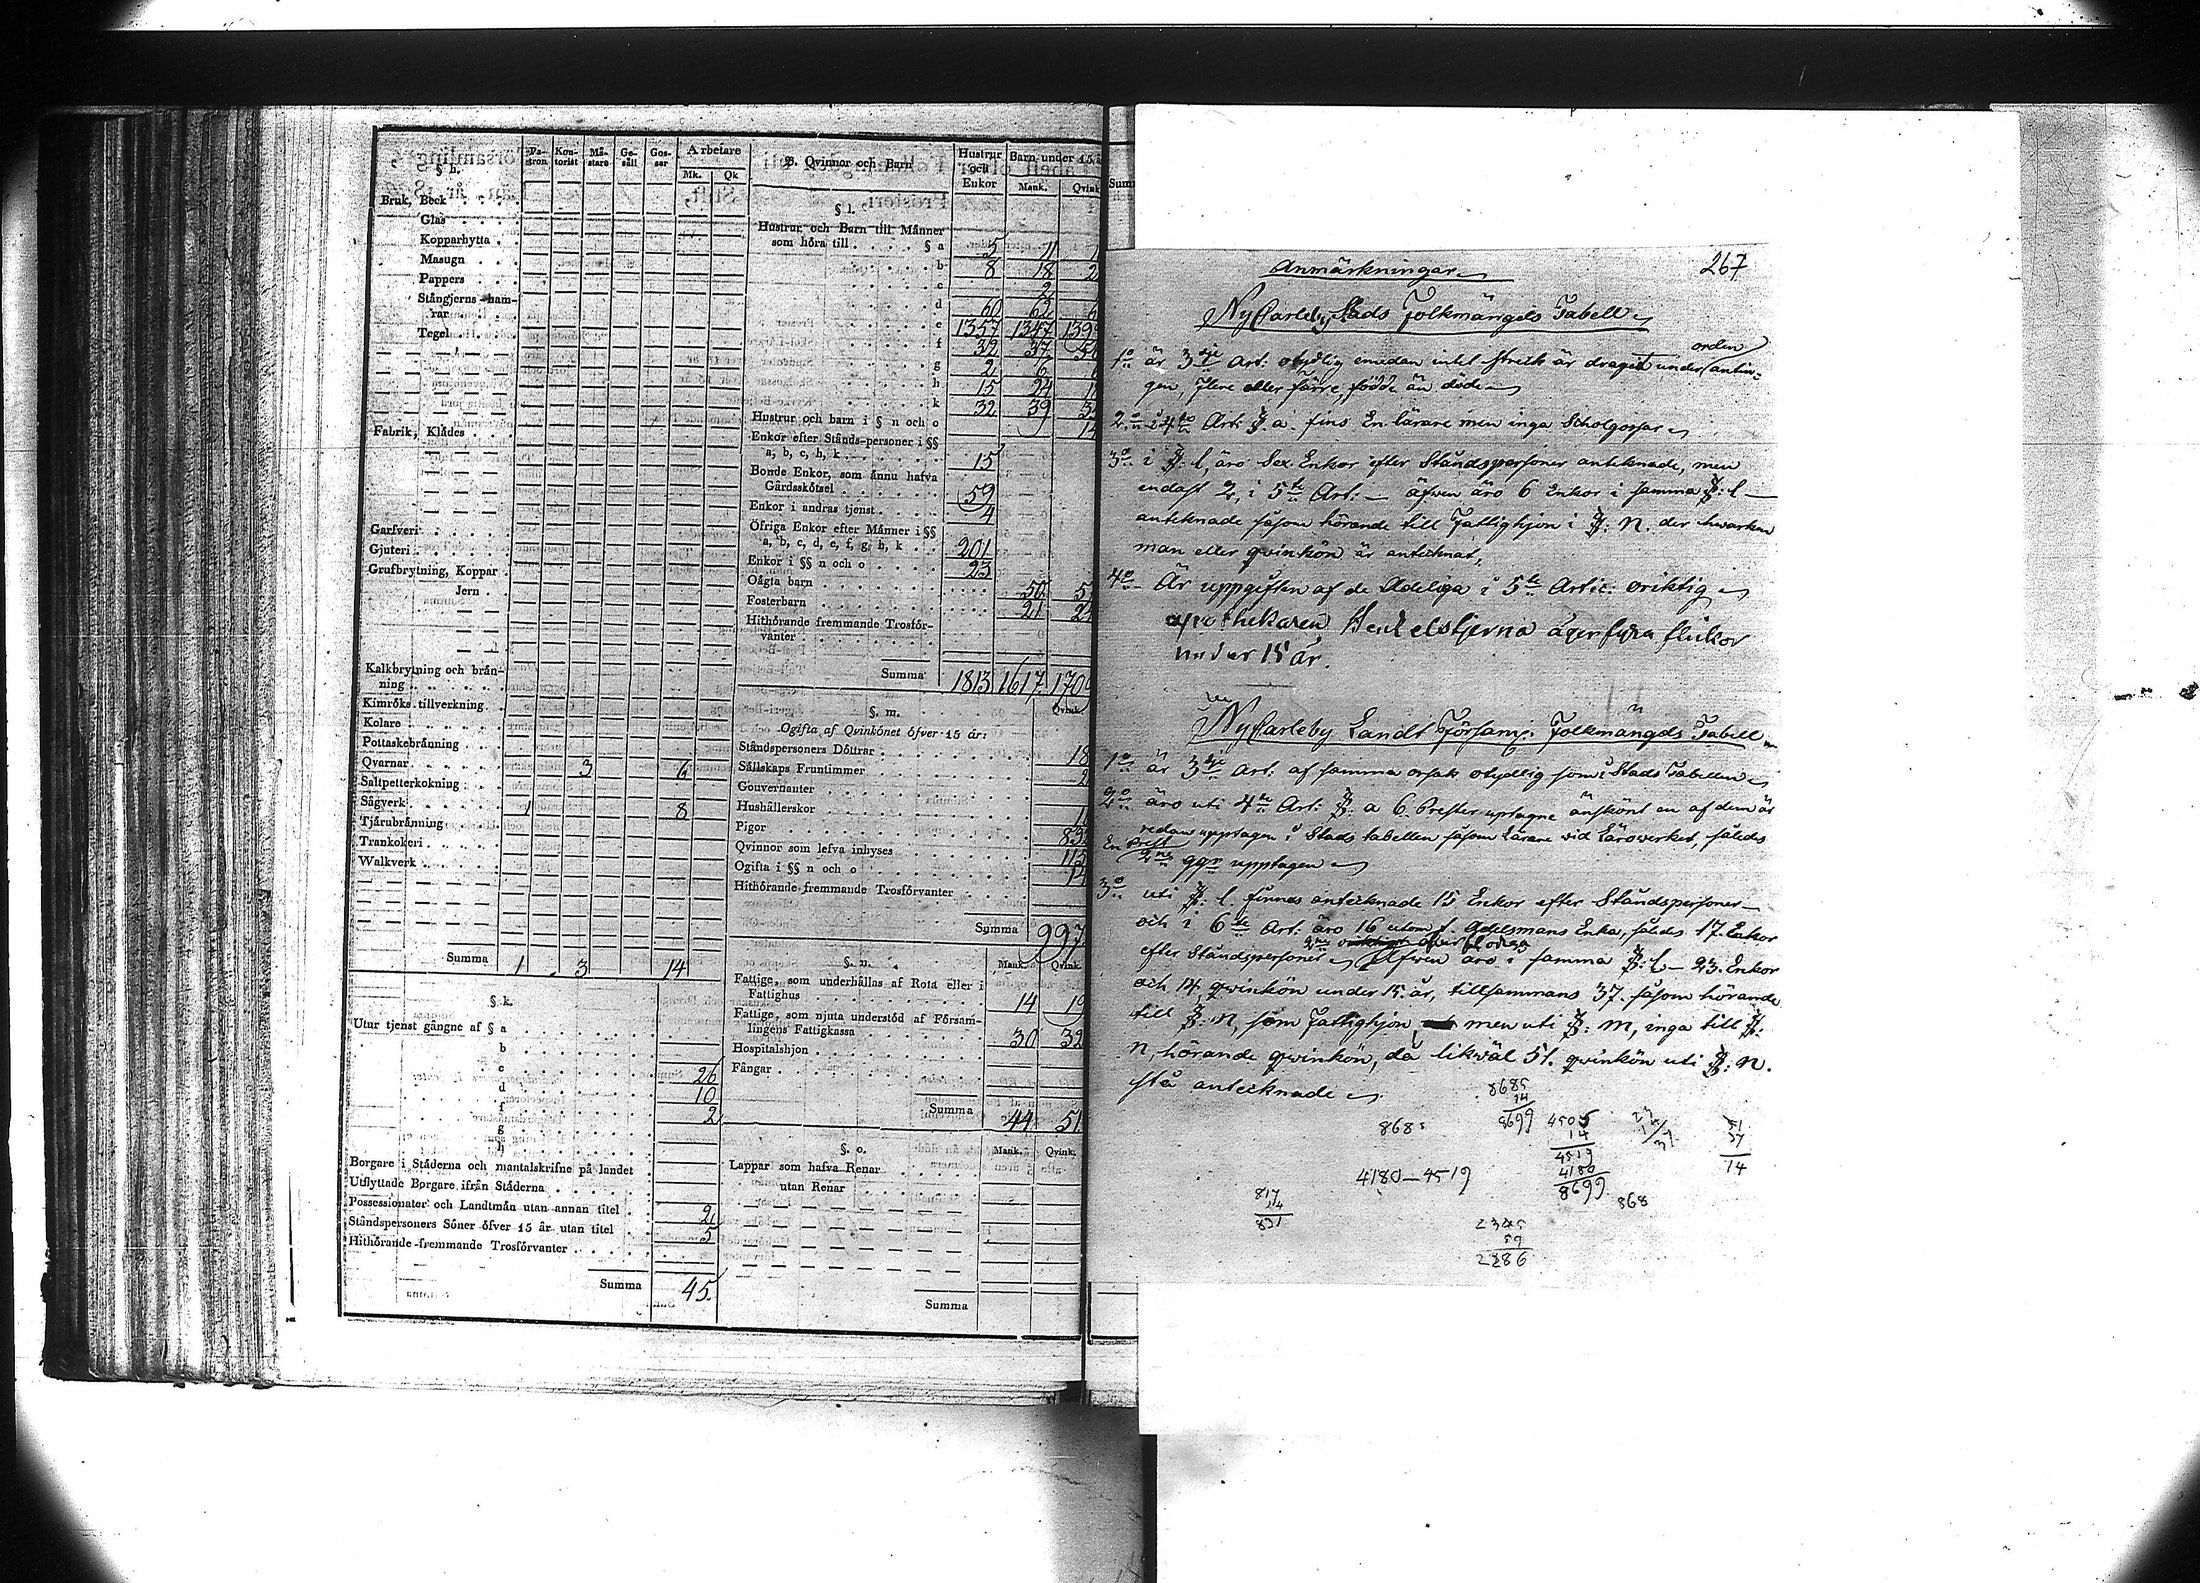 § h.
Pa-
tron Kon-
torist Må-
stare Ge-
säll Gos-
sar Arbetare
Mk. Qk
Bruk, Beck
Glas
Kopparhytta
Masugn
Pappers
Stångjerns-ham-
rar
Tegel
Fabrik, Klädes
Garfveri
Gjuteri
Grufbrytning, Koppar
Jern
Kalkbrytning och brän-
ning
Kimröks tillverkning
Kolare
Pottaskebränning
Qvarnar 3 6
Saltpetterkokning
Sågverk 1 8
Tjärubränning
Trankokeri
Walkverk
Summa 1 3 14
§ k.
Utur tjenst gångne af § a
b
c 26
d 10
f 2
g
h
Borgare i Städerna och mantalskrifne på landet
Utflyttade Borgare ifrån Städerna
Possessionater och Landtmän utan annan titel 2
Ståndspersoners Söner öfver 15 år utan titel 5
Hithörande fremmande Trosförvanter
Summa 45
B. Qvinnor och Barn Hustrur
och
Enkor Barn under 15
Mank. Qvink
§ l.
Hustrur och Barn till Männer
som höra till § a 5 11
b 8 18 2
c 2
d 60 62 6
e 1357 1347 139
f 32 37
g 2 6
h 15 24 1
k 32 39 3
Hustrur och barn i § n och o 14
Enkor efter Stånds-personer i §§
a, b, c, h, k 15
Bonde Enkor, som ännu hafva
Gårdsskötsel 59
Enkor i andras tjenst 4
Öfriga Enkor efter Männer i §§
a, b, c, d, e, f, g, h, k 201
Enkor i §§ n och o 23
Oägta barn 50 5
Fosterbarn 21 24
Hithörande fremmande Trosför-
vanter
Summa 1813 1617 1709
§. m. Qvink.
Ogifta af Qvinkönet öfver 15 år:
Ståndspersoners Döttrar 18
Sällskaps Fruntimmer 2
Gouvernanter
Hushållerskor
Pigor 83
Qvinnor som lefva inhyses 115
Ogifta i §§ n och o
Hithörande fremmande Trosförvanter
Summa 997
§. n. Mank. Qvink.
Fattige, som underhållas af Rota eller i
Fattighus 14 19
Fattige, som njuta understöd af Försam-
lingens Fattigkassa 30 32
Hospitalshjon
Fångar
Summa 44 51
§. o. Mank. Qvink.
Lappar som hafva Renar
utan Renar
Summa
267
Anmärkningar
NyCarleby Stads Folkmängds Tabell
orden
1o är 3dje Art: otydlig emedan intet streck är draget under antin-
gen, flere eller färre, födde än döde
2o i 4de Art: §. a. fins En lärare men inga Scholgossar
3o i §: l, äro Sex Enkor efter Ståndspersoner anteknade, men
endast 2, i 5te Art: — äfwen äro 6 Enkor i samma §: l —
anteknade såsom hörande till Fattighjon i §: N. der hwarken
man eller qwinkön är antecknat,
4o Är uppgiften af de Adeliga i 5te Artic: oriktig
apothekaren Henkelstjerna äger fyra flickor
under 15 år.
NyCarleby Landt Församl: Folkmängds Tabell
1o är 3dje Art: af samma orsak otydlig som i Stads Tabellen
2o äro uti 4de Art: §: a 6. Prester uptagne änskönt en af dem är
redan upptagen i Stads tabellen såsom Lärare vid Läroverket, således
En Prest 2ne ggr upptagen
3o uti §: l. finnes antecknade 15 Enkor efter Ståndspersoner
och i 6te Art: äro 16 utom 1. Adelsmans Enka, således 17. Enkor
efter Ståndspersoner Äfwen äro i samma §: l — 23. Enkor
och 14, qwinkön under 15. år, tillsammans 37. såsom hörande
till §: N, som Fattighjon men uti §: m, inga till §.
N, hörande qwinkön, då likwäl 51. qwinkön uti §: N.
stå antecknade
8685
14
8699
4505
14
4519
4180
8699
51
37
14
4180—4519
868
817
14
831
2345
59